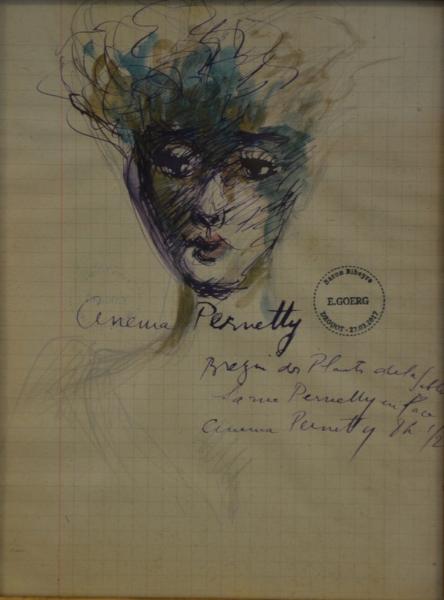 Cinema Pernetty
Baron Ribeyre
E.GOERG
DROUOT - 27.03.2017
Plants de la
rue Pernetty en face
Cinema Pernetty h 1/2